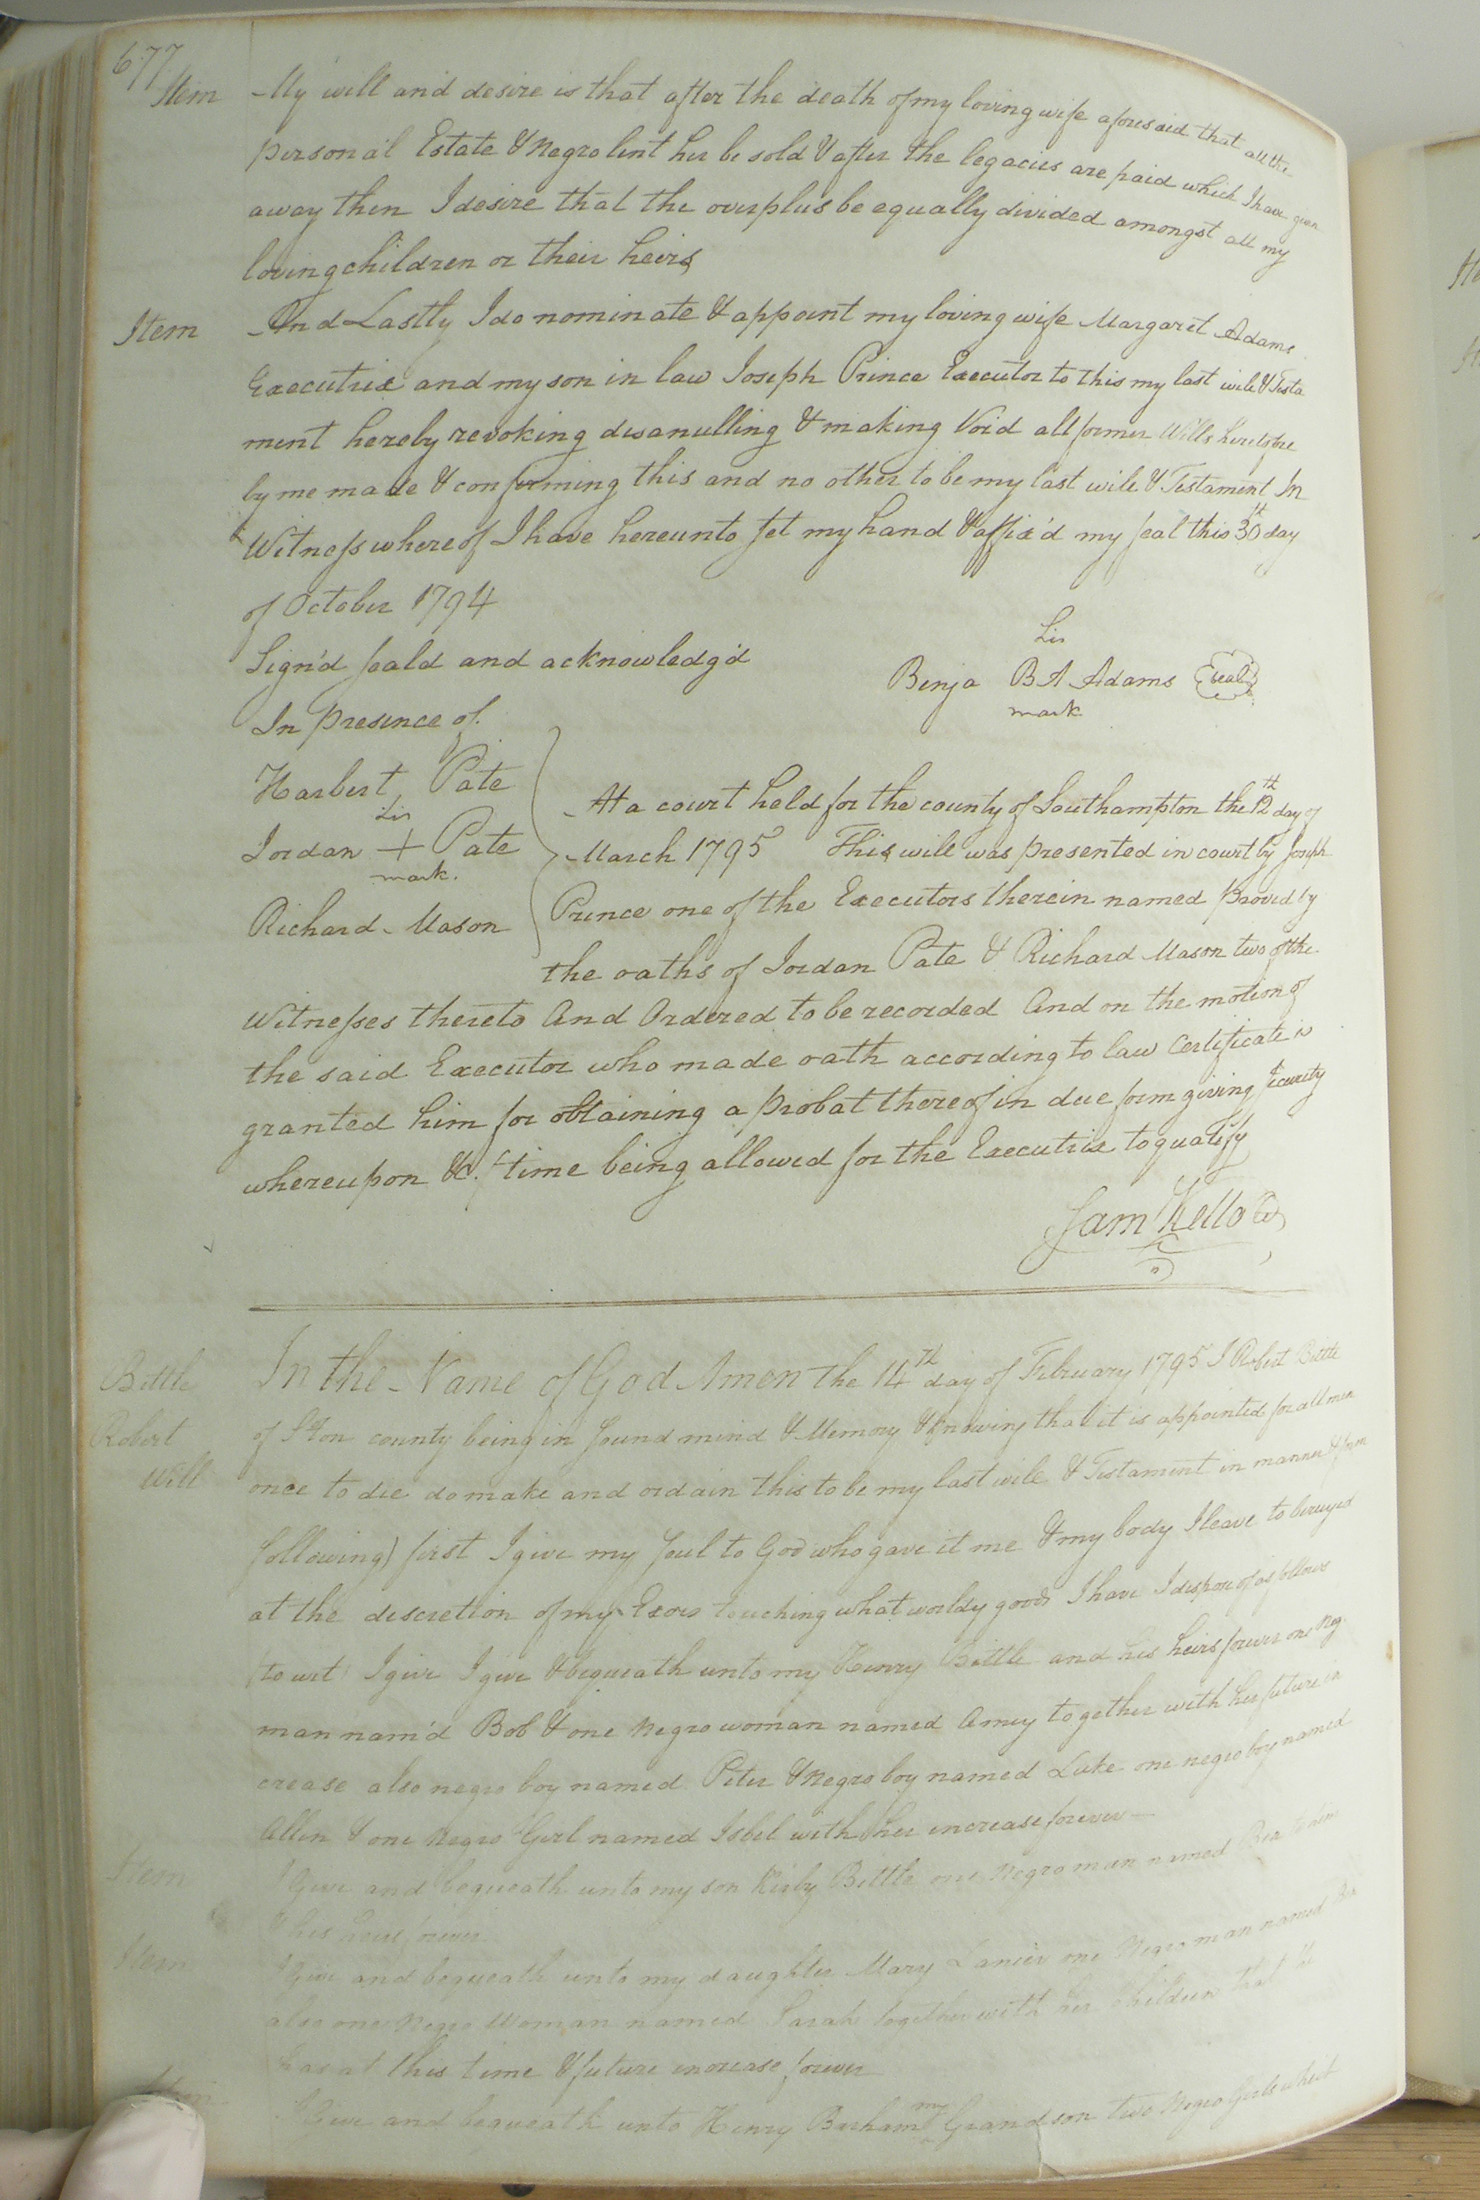 677
Item My will and desire is that after the death of my loving wife aforesaid that all the
personal Estate & Negro lent her be sold & after the legacies are paid which I have given
away then I desire that the overplus be equally divided amongst all my
loving children or their heirs
Item And Lastly I do nominate & appoint my loving wife Margaret Adams
Executrix and my son in law Joseph Prince Executor to this my last will & Testa
ment hereby revoking disanulling & making Void all former Wills heretofore
by me made & confirming this and no other to be my last will & Testament In
Witness whereof I have hereunto set my hand & affix'd my seal this 30th day
of October 1794
Sign'd seald and acknowledg'd
In presence of
his
Benja B A Adams seal
mark
Harbert Pate
his
Jordan + Pate
mark.
Richard Mason
At a court held for the county of Southampton the 12th day of
March 1795 This will was presented in court by Joseph
Prince one of the Executors therein named proved by
the oaths of Jordan Pate & Richard Mason two of the
Witnesses thereto And Ordered to be recorded And on the motion of
the said Executor who made oath according to law Certificate is
granted him for obtaining a probat thereof in due form giving security
whereupon &c. time being allowed for the Executrix to qualify
Sam Kello
Bittle
Robert
Will
In the Name of God Amen the 14th day of February 1795 I Robert Bittle
of S'ton county being in sound mind & Memory & knowing that it is appointed for all men
once to die do make and ordain this to be my last will & Testament in manner & form
following) first I give my soul to God who gave it me & my body I leave to be
at the discretion of my Exors touching what worldy goods I have I dispose of as follows
(to wit) I give I give & bequeath unto my Henry Bittle and his heirs forever one Neg
man nam'd Bob & one Negro woman named Amey together with her future in
crease also negro boy named Peter & Negro boy named Luke one negro boy named
Allen & one Negro Girl named Isbel with her increase forever
Item I Give and bequeath unto my son Kirby Bittle one Negro man named
& his heirs forever
Item I Give and bequeath unto my daughter Mary Lanier one Negro man named
also one Negro Woman named Sarah together with her children that
has at this time & future increase forever
Item I Give and bequeath unto Henry Barham my Grandson two Negro Girls which